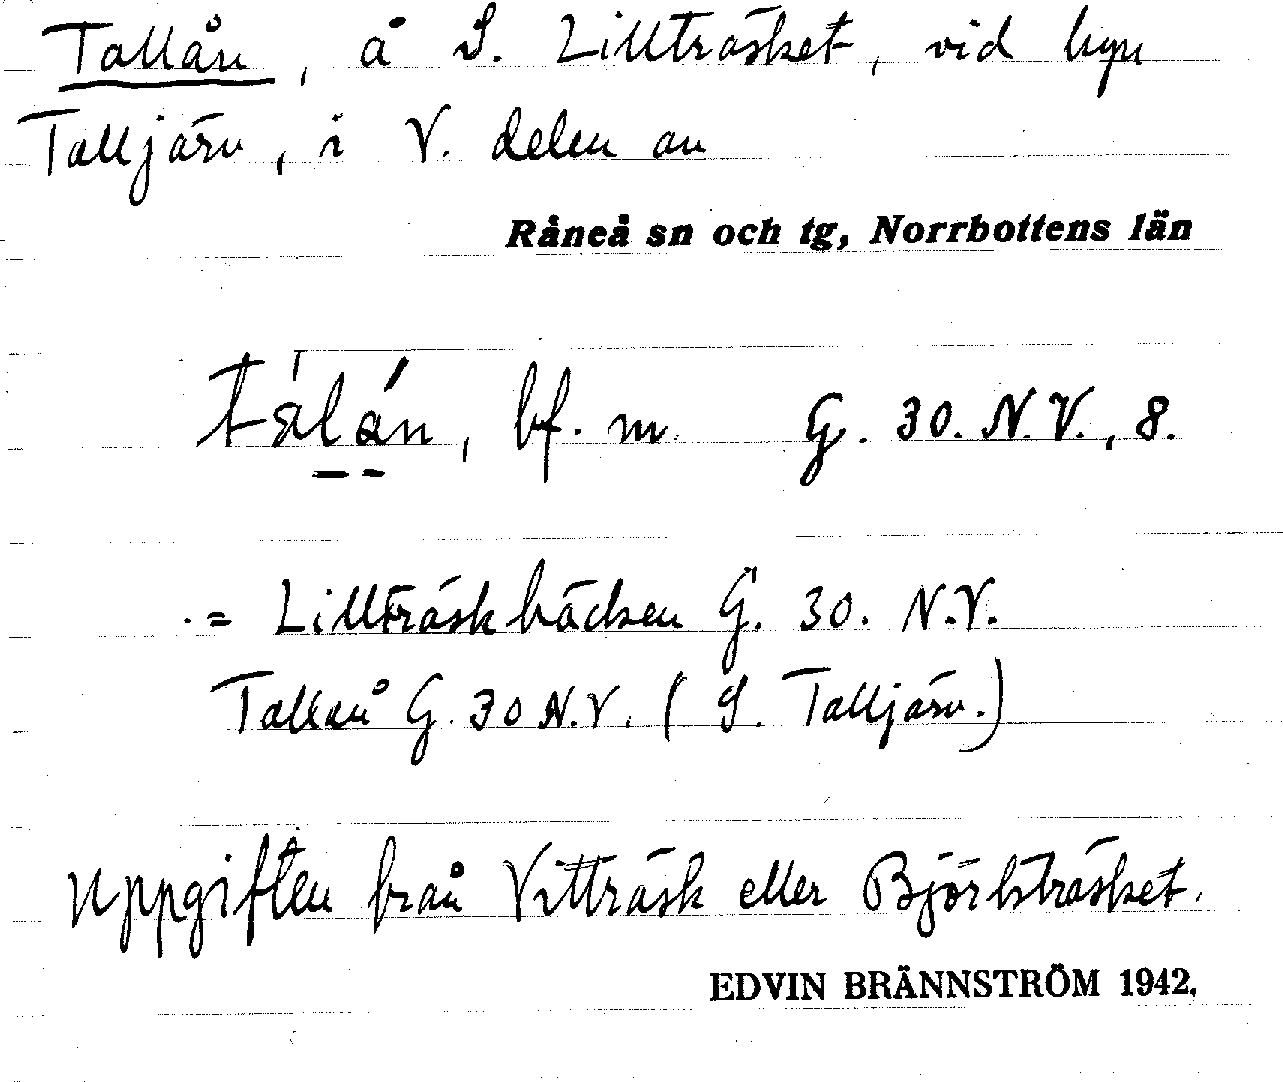 Tallån, å S. Lillträsket, vid byn
Talljärv, i V. delen av
Råneå sn och tg, Norrbottens län
tálán, bf. m. G. 30. N.V., 8.
= Lillträskbäcken G. 30. N.V.
Tallån G. 30 N.V. (S. Talljärv.)
Uppgiften från Vitträsk eller Björkträsket.
EDVIN BRÄNNSTRÖM 1942.